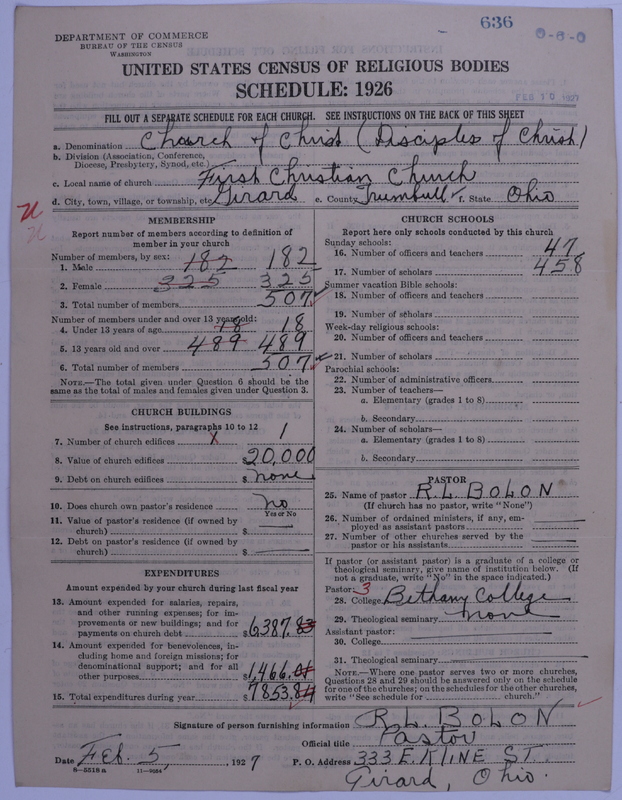 636
0-0-0
DEPARTMENT OF COMMERCE
BUREAU OF THE CENSUS
WASHINGTON
UNITED STATES CENSUS OF RELIGIOUS BODIES
SCHEDULE: 1926
FEB 10 1927
FILL OUT A SEPARATE SCHEDULE FOR EACH CHURCH. SEE INSTRUCTIONS ON THE BACK OF THIS SHEET
a. Denomination Church of Christ (Disciples of Christ)
b. Division (Association, Conference, Diocese, Presbytery, Synod, etc.)
c. Local name of church First Christian Church
d. City, town, village, or township, etc. Girard e. County Trumbull f. State Ohio
MEMBERSHIP
Report number of members according to definition of
member in your church
Number of members, by sex:
1. Male 182 182
2. Female 325 325
3. Total number of members 507
Number of members under and over 13 years old:
4. Under 13 years of age 18 18
5. 13 years old and over 489 489
6. Total number of members 507
NOTE.—The total given under Question 6 should be the
same as the total of males and females given under Question 3.
CHURCH BUILDINGS
See instructions, paragraphs 10 to 12
7. Number of church edifices X 1
8. Value of church edifices $20,000
9. Debt on church edifices $ none
10. Does church own pastor's residence no
Yes or No
11. Value of pastor's residence (if owned by
church) $
12. Debt on pastor's residence (if owned by
church) $
EXPENDITURES
Amount expended by your church during last fiscal year
13. Amount expended for salaries, repairs,
and other running expenses; for im-
provements or new buildings; and for
payments on church debt $6387.83
14. Amount expended for benevolences, in-
cluding home and foreign missions; for
denominational support; and for all
other purposes $1,466.01
15. Total expenditures during year $7853.84
CHURCH SCHOOLS
Report here only schools conducted by this church
Sunday schools:
16. Number of officers and teachers 47
17. Number of scholars 458
Summer vacation Bible schools:
18. Number of officers and teachers
19. Number of scholars
Week-day religious schools:
20. Number of officers and teachers
21. Number of scholars
Parochial schools:
22. Number of administrative officers
23. Number of teachers—
a. Elementary (grades 1 to 8)
b. Secondary
24. Number of scholars—
a. Elementary (grades 1 to 8)
b. Secondary
PASTOR
25. Name of pastor R. L. BOLON
(If church has no pastor, write "None")
26. Number of ordained ministers, if any, em-
ployed as assistant pastors
27. Number of other churches served by the
pastor or his assistants
If pastor (or assistant pastor) is a graduate of a college or
theological seminary, give name of institution below. (If
not a graduate, write "No" in the space indicated.)
Pastor: 3
28. College Bethany College
29. Theological seminary none
Assistant pastor:
30. College
31. Theological seminary
NOTE.—Where one pastor serves two or more churches,
Questions 28 and 29 should be answered only on the schedule
for one of the churches; on the schedules for the other churches,
write "See schedule for church."
Signature of person furnishing information R. L. BOLON
Official title Pastor
Date Feb. 5, 1927 P. O. Address 333 E. KLINE ST.
8—5518 a 11—9084 Girard, Ohio.